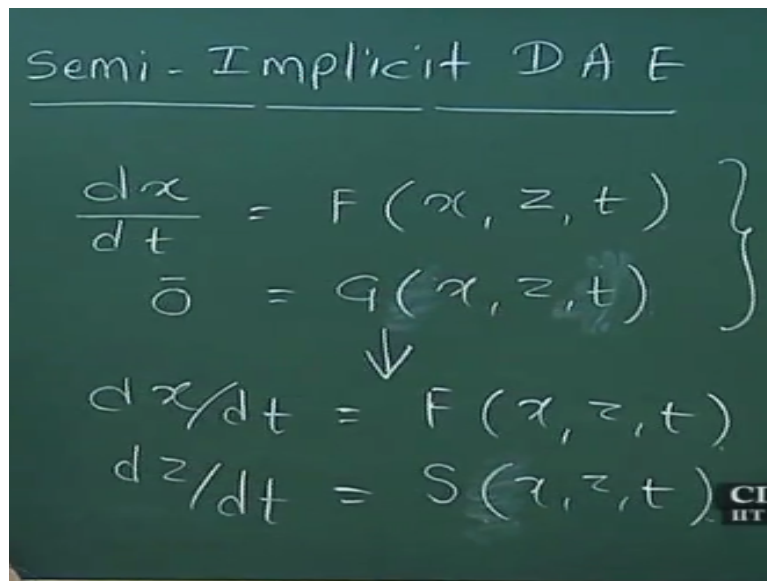 Semi-Implicit DAE
dx/dt = F(x, z, t)
0̄ = G(x, z, t)
↓
dx/dt = F(x, z, t)
dz/dt = S(x, z, t)
IIT